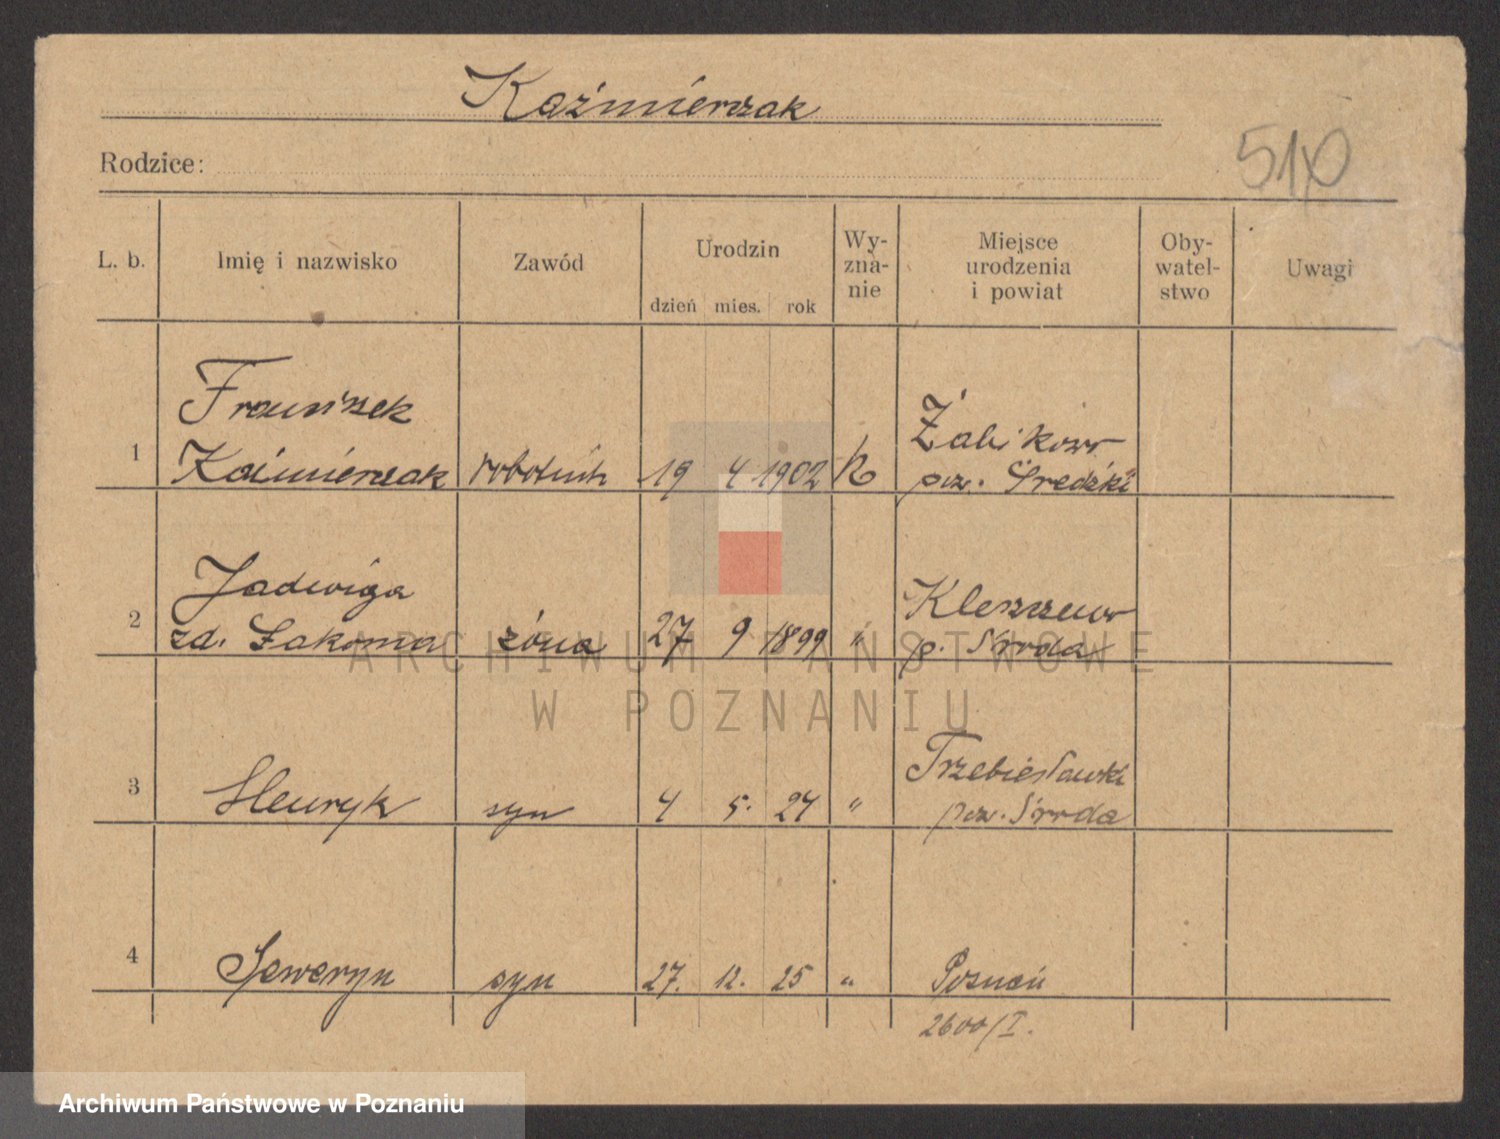 Kaźmierczak
510
Rodzice:
L. b. Imię i nazwisko Zawód Urodzin dzień mies. rok Wy-zna-nie Miejsce urodzenia i powiat Oby-watel-stwo Uwagi
Franciszek Żabikowo
1 Kaźmierczak robotnik 19 4 1902 R pow. Średzki
Jadwiga Kleszczewo
2 zd. Łakoma żona 27 9 1899 " p. Środa
Trzebisławki
3 Henryk syn 4 5. 24 " pow. Środa
4 Seweryn syn 27. 12. 25 " Poznań
2600/I.
ARCHIWUM PAŃSTWOWE
W POZNANIU
Archiwum Państwowe w Poznaniu